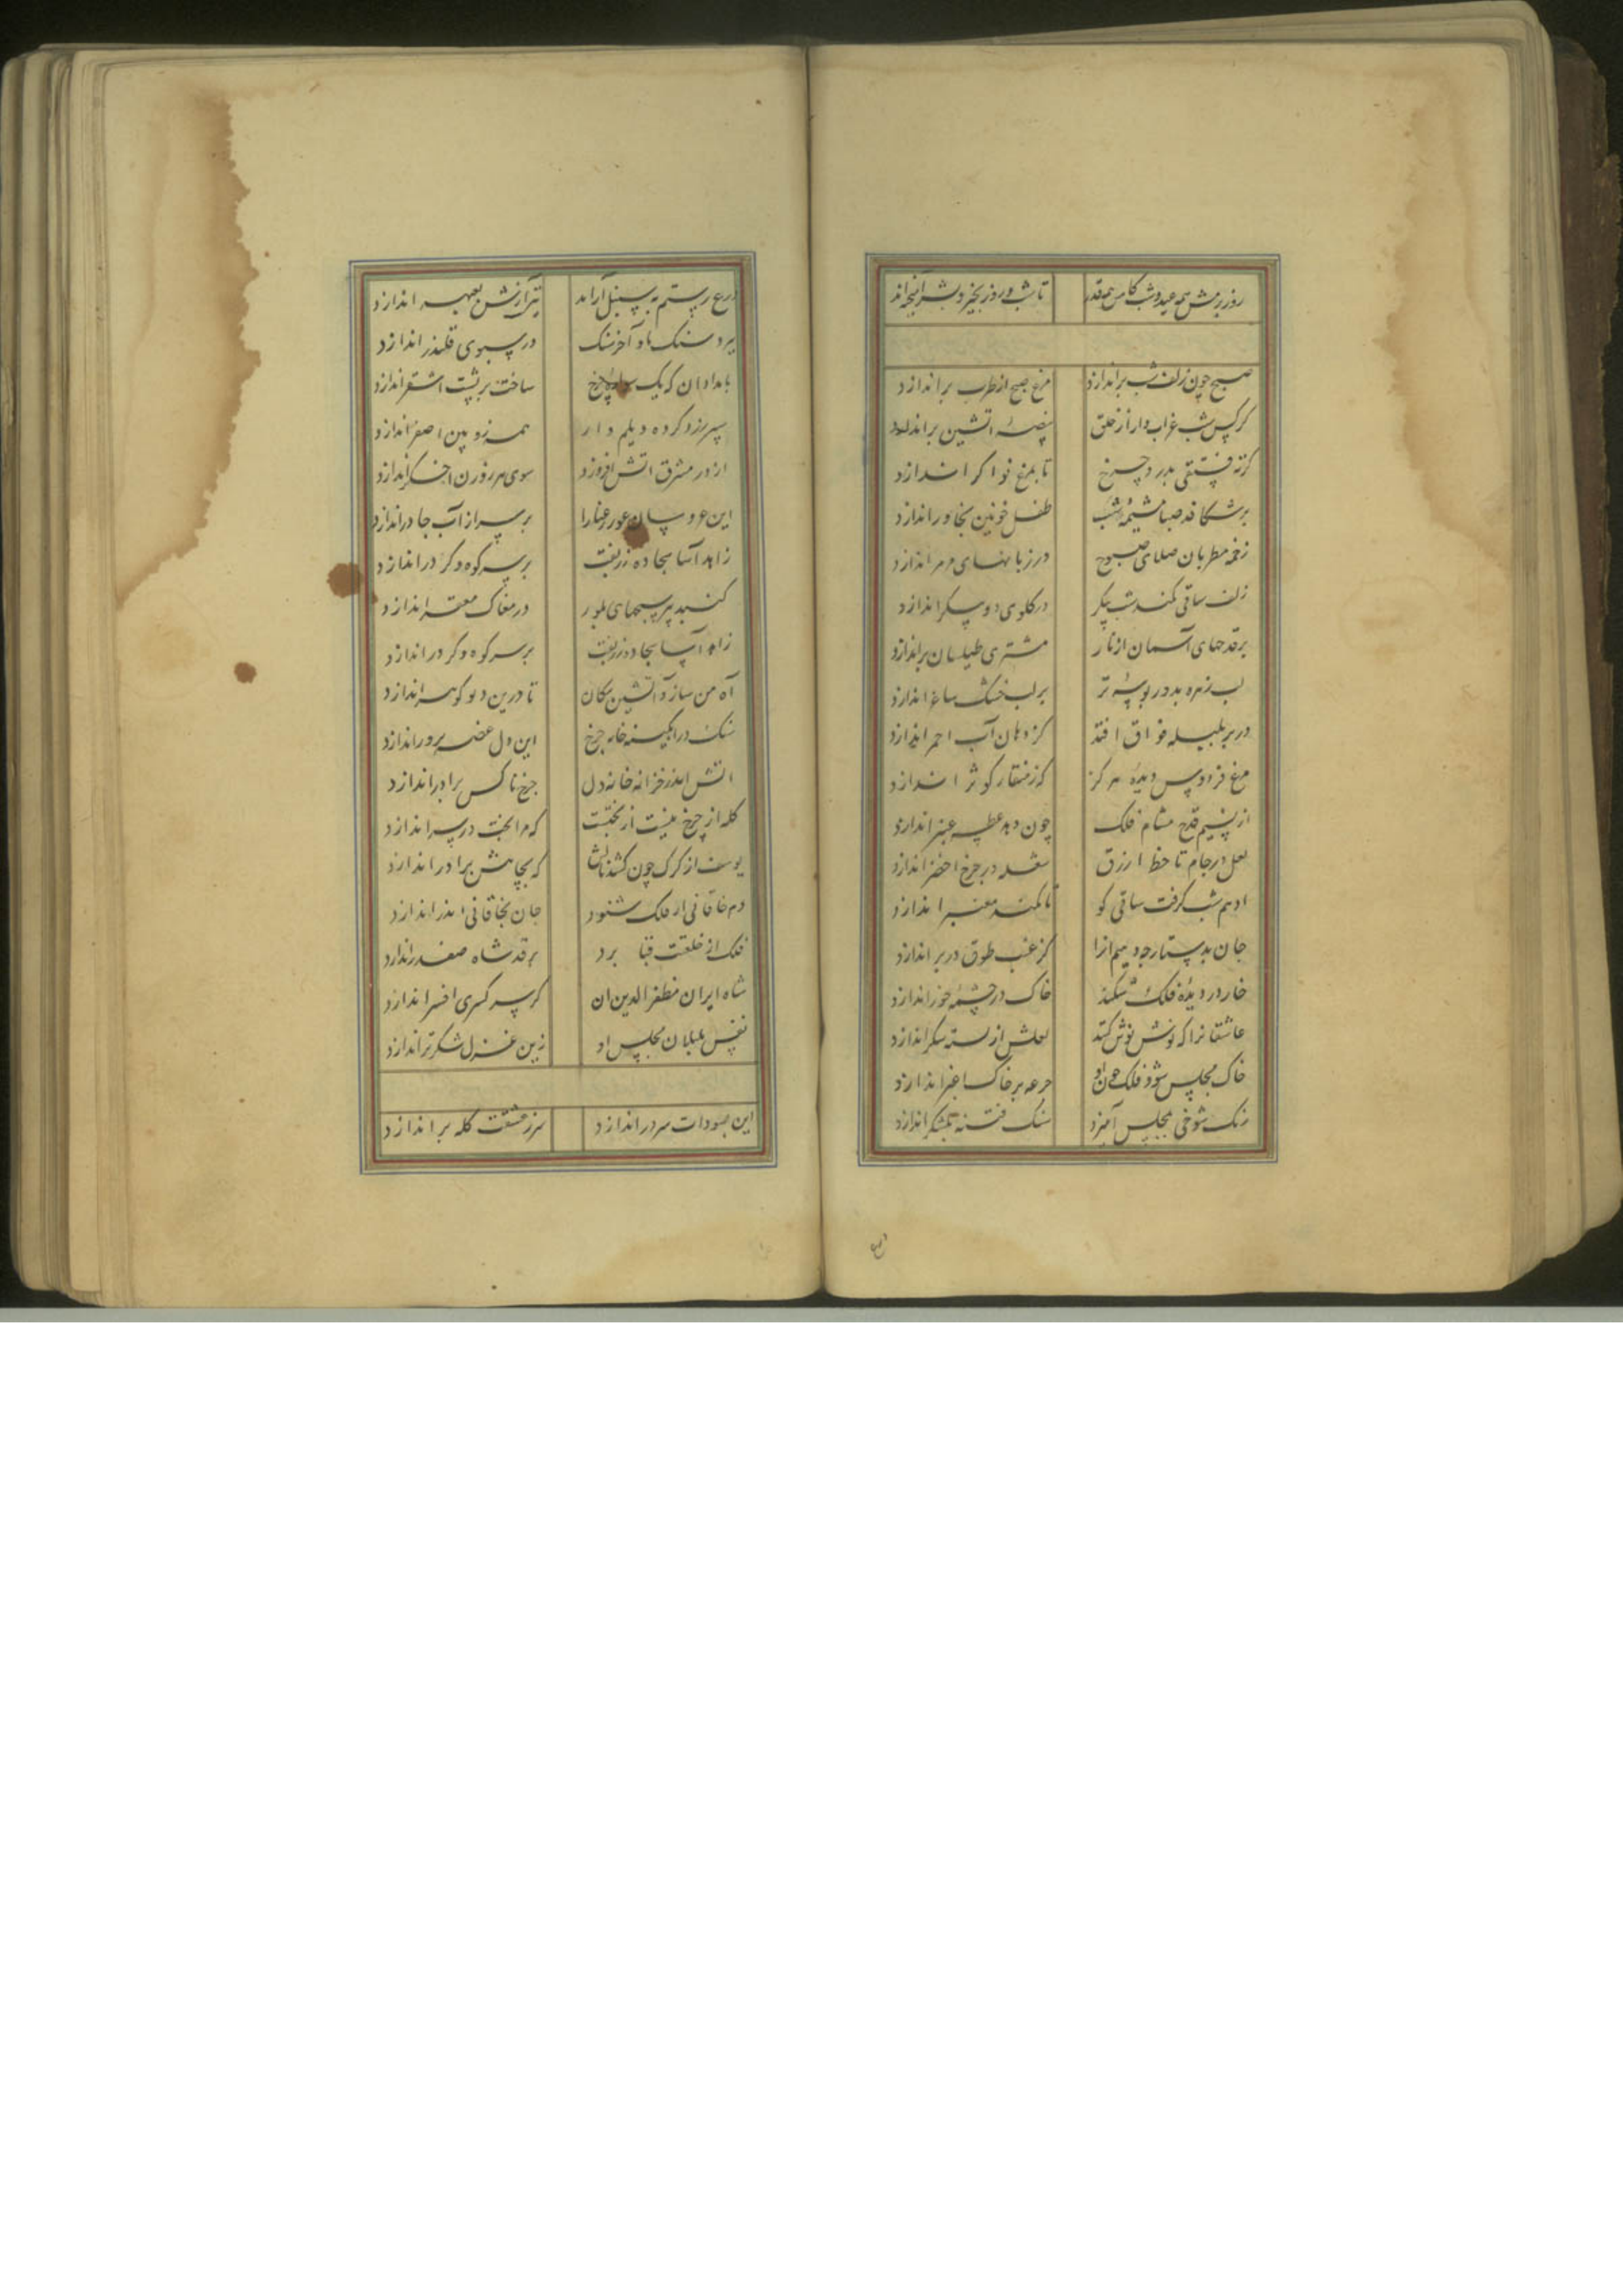 روز بزمش همه عید و شب کامش همه قدر تا شب و روز بخیر و بشر آمیخته‌اند
صبح چون زلف شب براندازد مرغ صبح از طرب براندازد
کرکس شب غراب وار از حلق بیضه آتشین براندازد
کرته فستقی بدرد چرخ تا بمرغ نوا کر اندازد
برشکافد صبا مشیمه شب طفل خونین بخاور اندازد
زخمه مطربان صلای صبوح در زبانهای مزمر اندازد
زلف ساقی کمند شب پیکر در کلوی دو پیکر اندازد
بر قدحهای آسمان زنار مشتری طیلسان براندازد
لب زهره بدور بوسه تر بر لب خشک ساغر اندازد
در بر بلبله فواق افتد کز دهان آب احمر اندازد
مرغ فردوس دیده هر کز که ز منقار کوثر اندازد
از نسیم قدح مشام فلک چون دهد عطسه عنبر اندازد
لعل در جام تا خط ازرق شعله در چرخ اخضر اندازد
ادهم شب کریخت ساقی کو تا کمند معنبر اندازد
جان بدستارچه دهیم آنرا کز غبب طوق در بر اندازد
خار در دیده فلک شکند خاک در چشمه خور اندازد
عاشقانرا که نوش نوش کند لعلش از بسته شکر اندازد
خاک مجلس شود فلک چون او جرعه بر خاک اغبر اندازد
رنک شوخی بمجلس آمیزد سنک فتنه بلشکر اندازد
درع رستم به سنبل آراید تیر آرش بعبهر اندازد
ببرد سنک ما و آخر سنک در سبوی قلندر اندازد
بامدادان که یک سواره چرخ ساخت بر پشت اشقر اندازد
سپر زرد کرده دیلم وار همه زوبین اصفر اندازد
از در مشرق آتش افروزد سوی هر روزن اخکر اندازد
این عروسان عور رعنا را بر سر از آب چادر اندازد
زاهد آسا سجاده زربفت بر سر کوه و کردر اندازد
کنبد پر سبحهای بلور در مغاک مقعر اندازد
زاهد آسا سجاده زربفت بر سر کوه و کردر اندازد
آه من سازد آتشین پیکان تا درین دیو کوهر اندازد
سنک در آبکینه خانه چرخ این دل غصه پرور اندازد
آتش اندر خزانه خانه دل چرخ ناکس برادر اندازد
کله از چرخ نیست از بختست که مرا بخت در سر اندازد
یوسف از کرک چون کند نالش که بچاهش برادر اندازد
دم خاقانی ار فلک شنود جان بخاقانی اندر اندازد
فلک از خلعت قبا برد بر قد شاه صفدر اندازد
شاه ایران مظفر الدین آن کز سر کسری افسر اندازد
نفس بلبلان مجلس او زین غزل شکر تر اندازد
این بسودات سر در اندازد سر ز عشقت کله براندازد